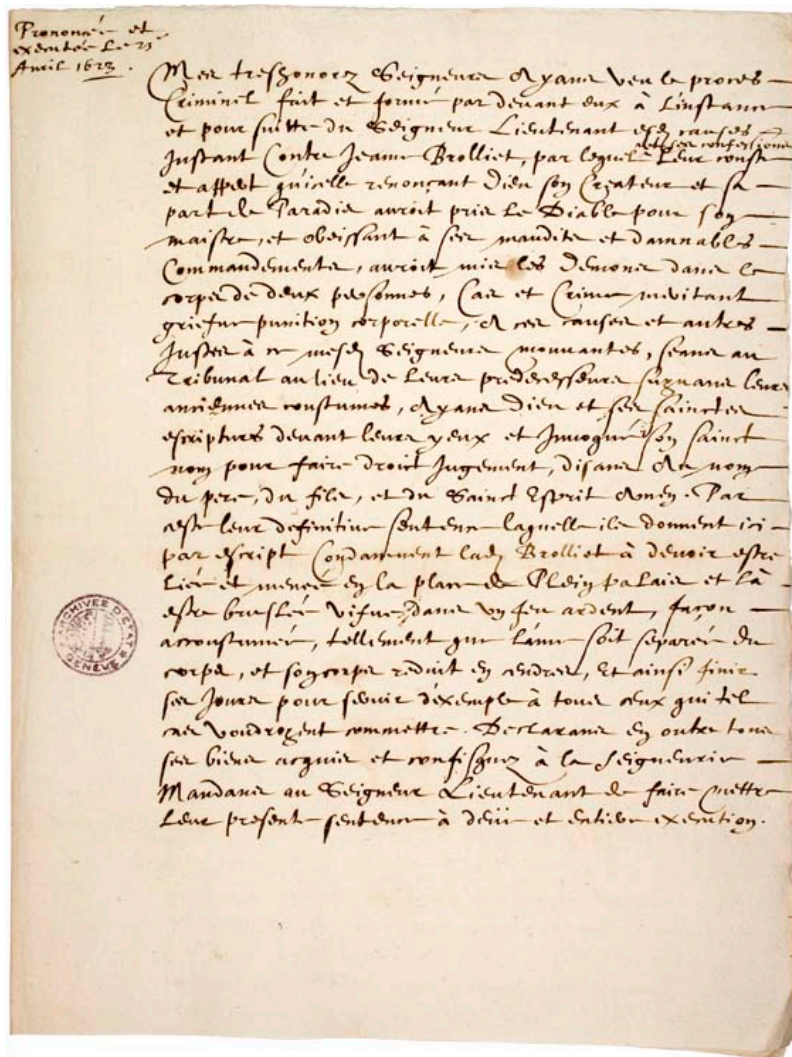 Prononcée et
executée Le 23
Avril 1623.
Mes treshonorez Seigneurs Ayans veu le proces
Criminel fait et formé par devant eux à L'instance
et poursuitte du Seigneur Lieutenant esd. causes
et ses confessions
Instant Contre Jeanne Brolliet, par lequel Leur conste
et appert qu'icelle renonçant Dieu son Createur et sa
part de Paradis auroit pris Le Diable pour son
maistre, et obeissant à ses maudits et damnables
Commandements, auroit mis les Demons dans le
corps de deux personnes, Cas et Crime meritant
griefve punition corporelle, A ces causes et autres
Justes à ce mesd. Seigneurs mouvantes, seans au
Tribunal au lieu de Leurs predecesseurs suyvans leurs
anciennes coustumes, Ayans Dieu et ses sainctes
escriptures devant leurs yeux et Invoqué son sainct
nom pour faire droict Jugement, disans Au nom
du pere, du fils, et du Sainct Esprit Amen. Par
ceste leur definitive sentence laquelle ils donnent ici
par escript Condamnent lad. Brolliet à devoir estre
Liée et menée en la place de Plein palais et là
estre bruslée vifve, dans un feu ardent, façon
accoustumée, tellement que l'ame soit separée du
corps, et son corps reduit en cendres, Et ainsi finir
ses Jours pour servir d'exemple à tous ceux qui tel
cas voudroyent commettre. Declarans en outre tous
ses biens acquis et confisquez à la Seigneurie
Mandans au Seigneur Lieutenant de faire mettre
Leur presente sentence à deüe et entiere execution.
ARCHIVES D'ETAT
GENEVE